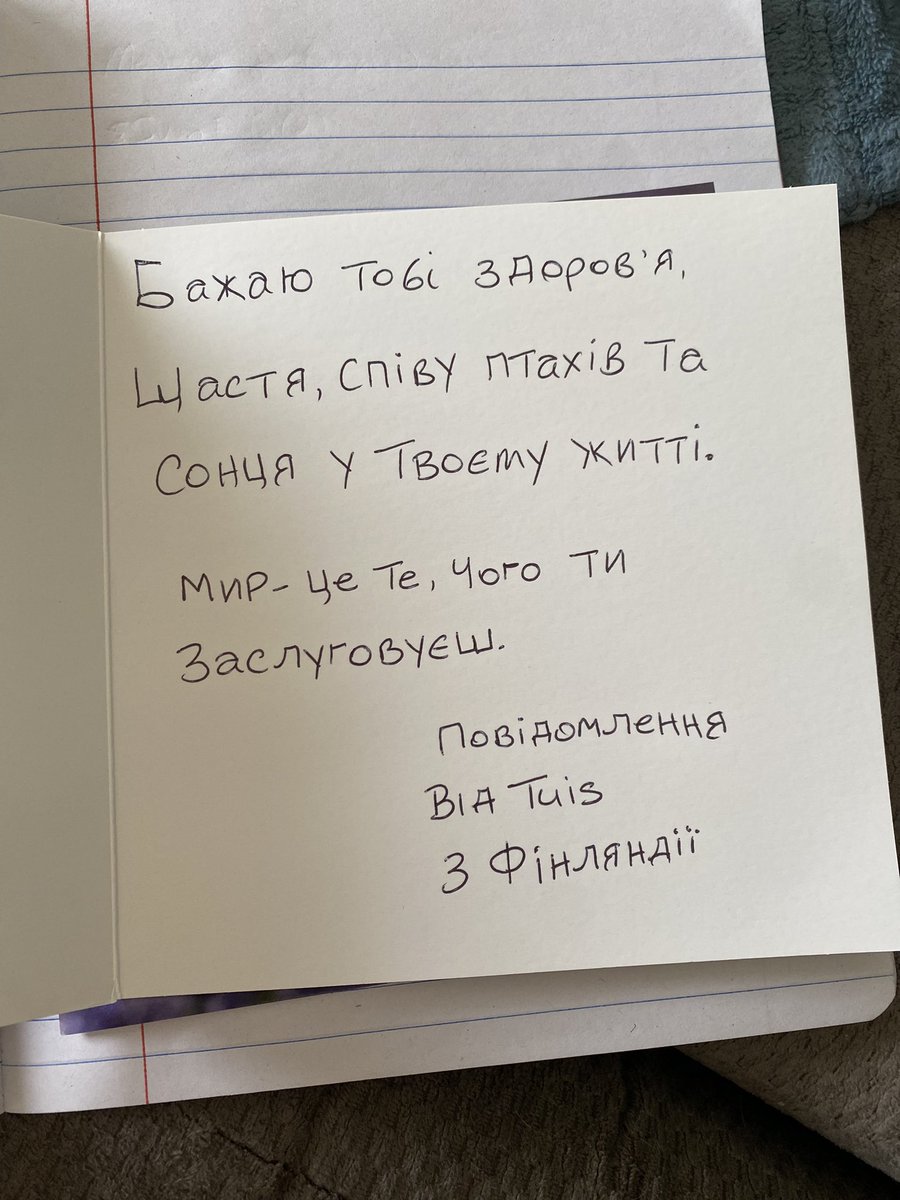 Бажаю тобі здоров'я,
Щастя, співу птахів та
Сонця у твоєму житті.
Мир- це те, чого ти
Заслуговуєш.
Повідомлення
Від Tuis
З Фінляндії